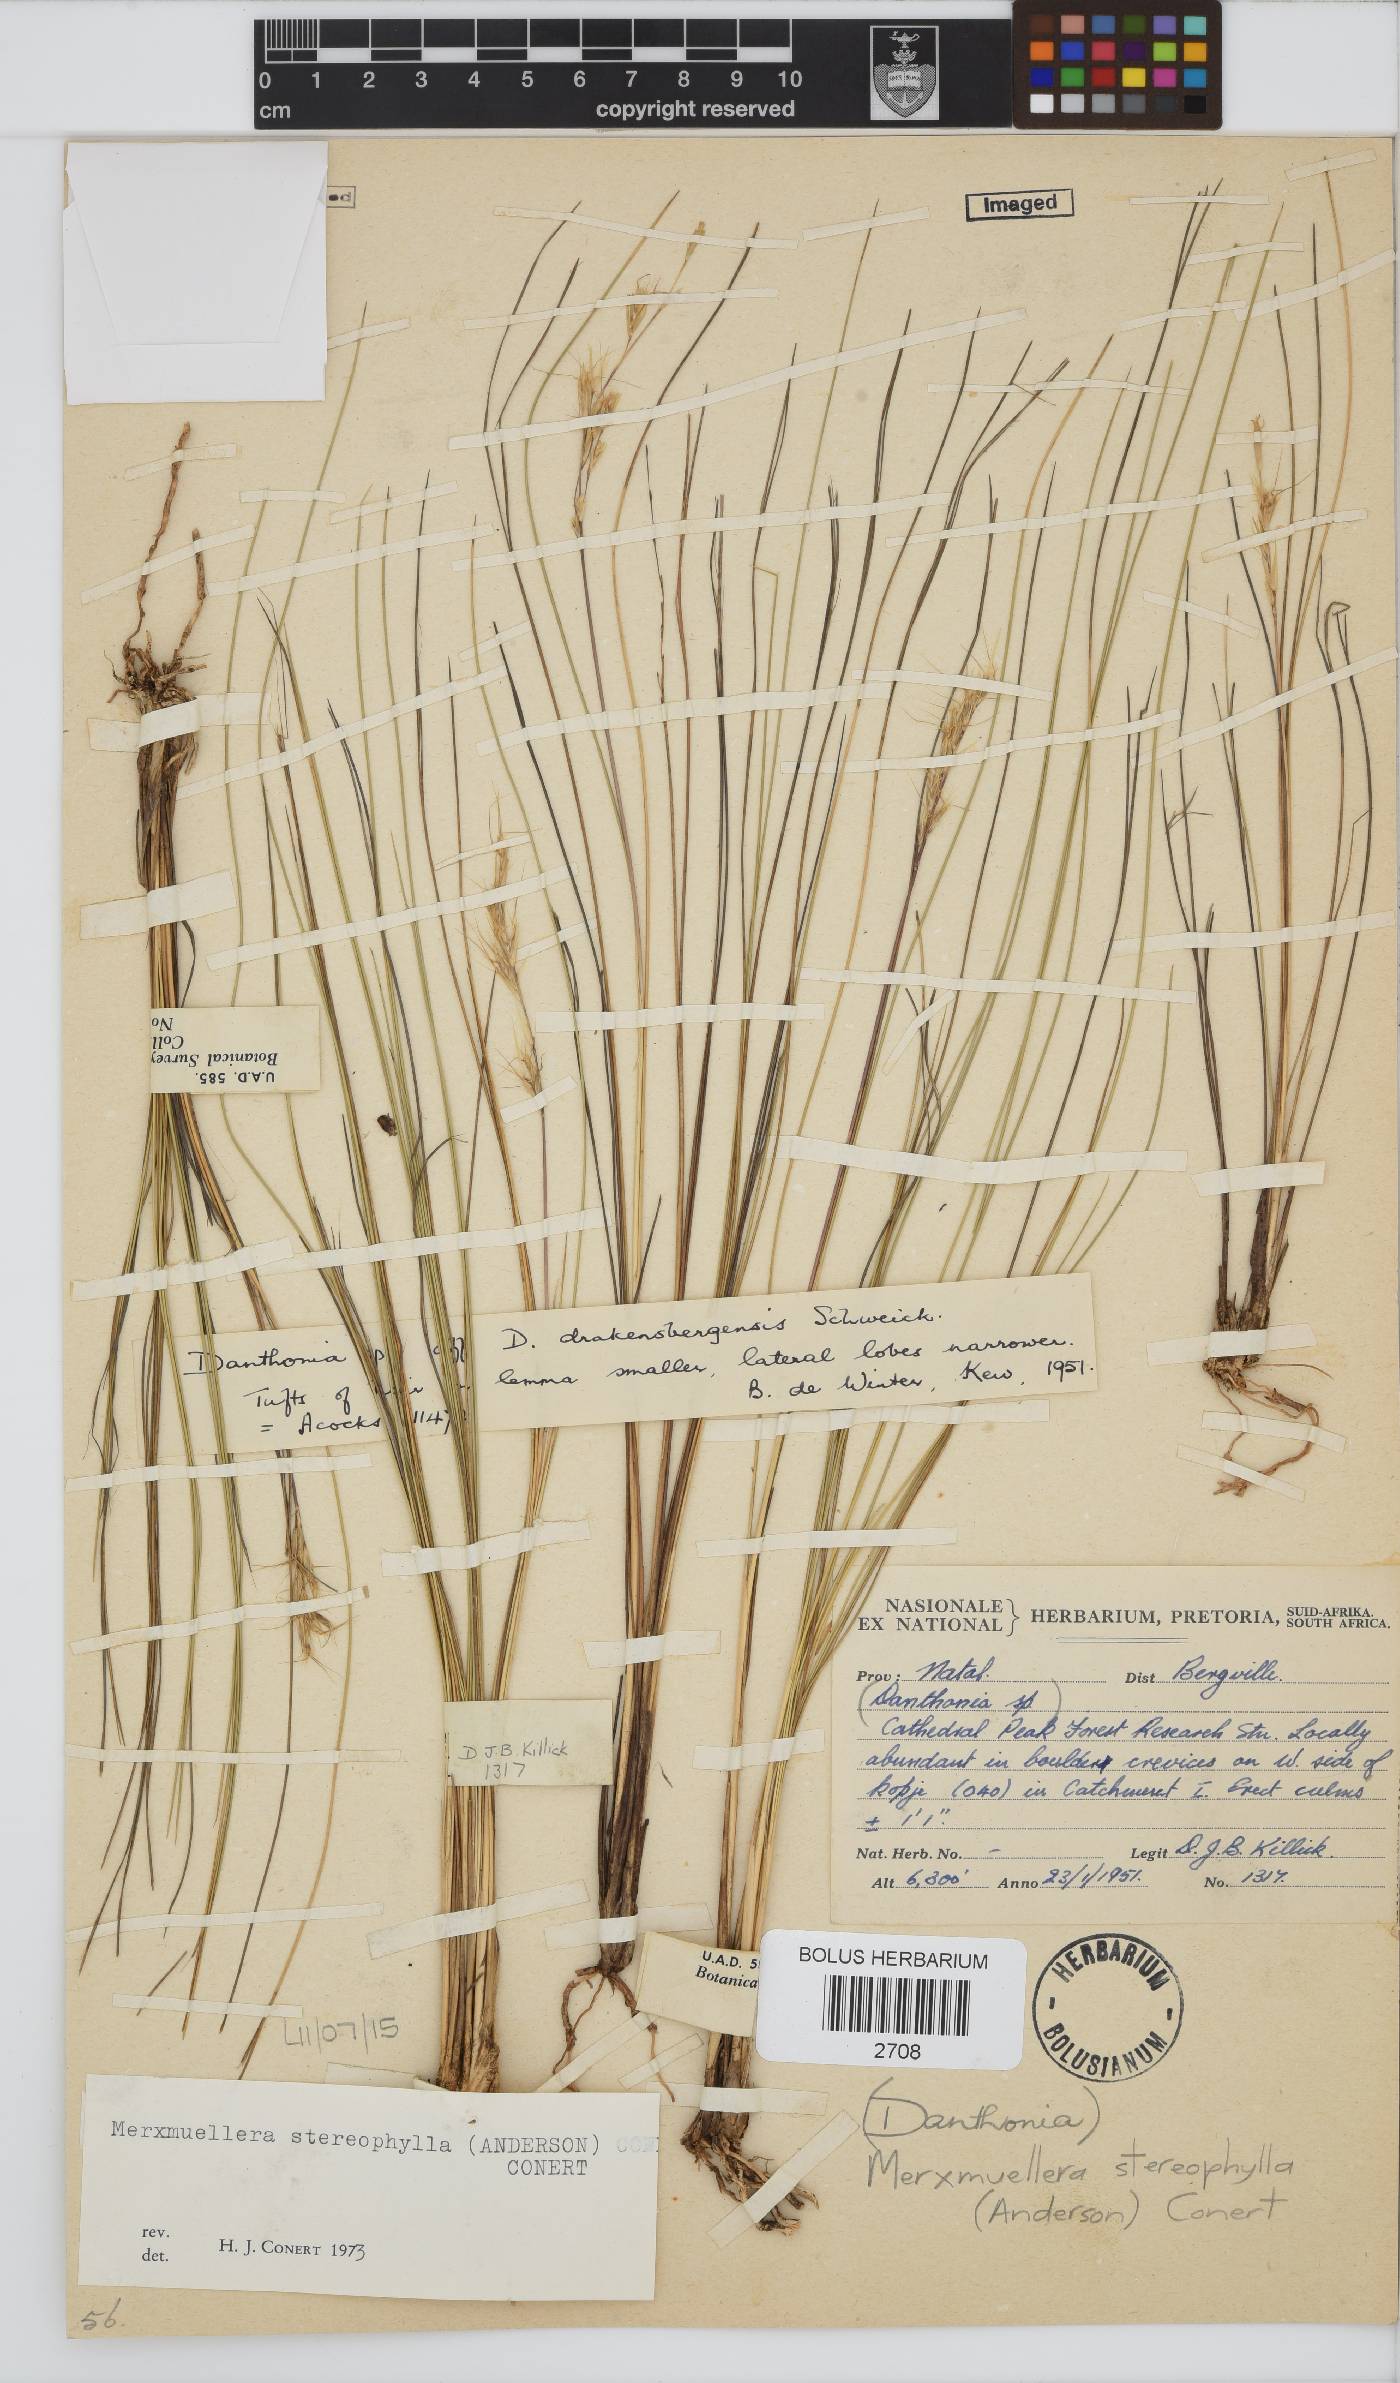 0 1 2 3 4 5 6 7 8 9 10
cm
copyright reserved
Imaged
U.A.D. 585.
Botanical Survey
Coll
No
Danthonia
Tufts of
= Acocks 1147
D. drakensbergensis Schweick.
lemma smaller, lateral lobes narrower.
B. de Winter, Kew, 1951.
NASIONALE
EX NATIONAL } HERBARIUM, PRETORIA, SUID-AFRIKA.
SOUTH AFRICA.
Prov: Natal. Dist Bergville.
(Danthonia sp)
Cathedral Peak Forest Research Stn. Locally
abundant in boulder crevices on W. side of
kopje (040) in Catchment I. Erect culms
± 1' 1".
Nat. Herb. No. - Legit D.J.B. Killick.
Alt 6,300' Anno 23/1/1951. No. 1317.
D J.B. Killick
1317
U.A.D. 5
Botanica
BOLUS HERBARIUM
2708
HERBARIUM
BOLUSIANUM
/07/15
(Danthonia)
Merxmuellera stereophylla
(Anderson) Conert
Merxmuellera stereophylla (ANDERSON) CON
CONERT
rev.
det. H. J. CONERT 1973
56.